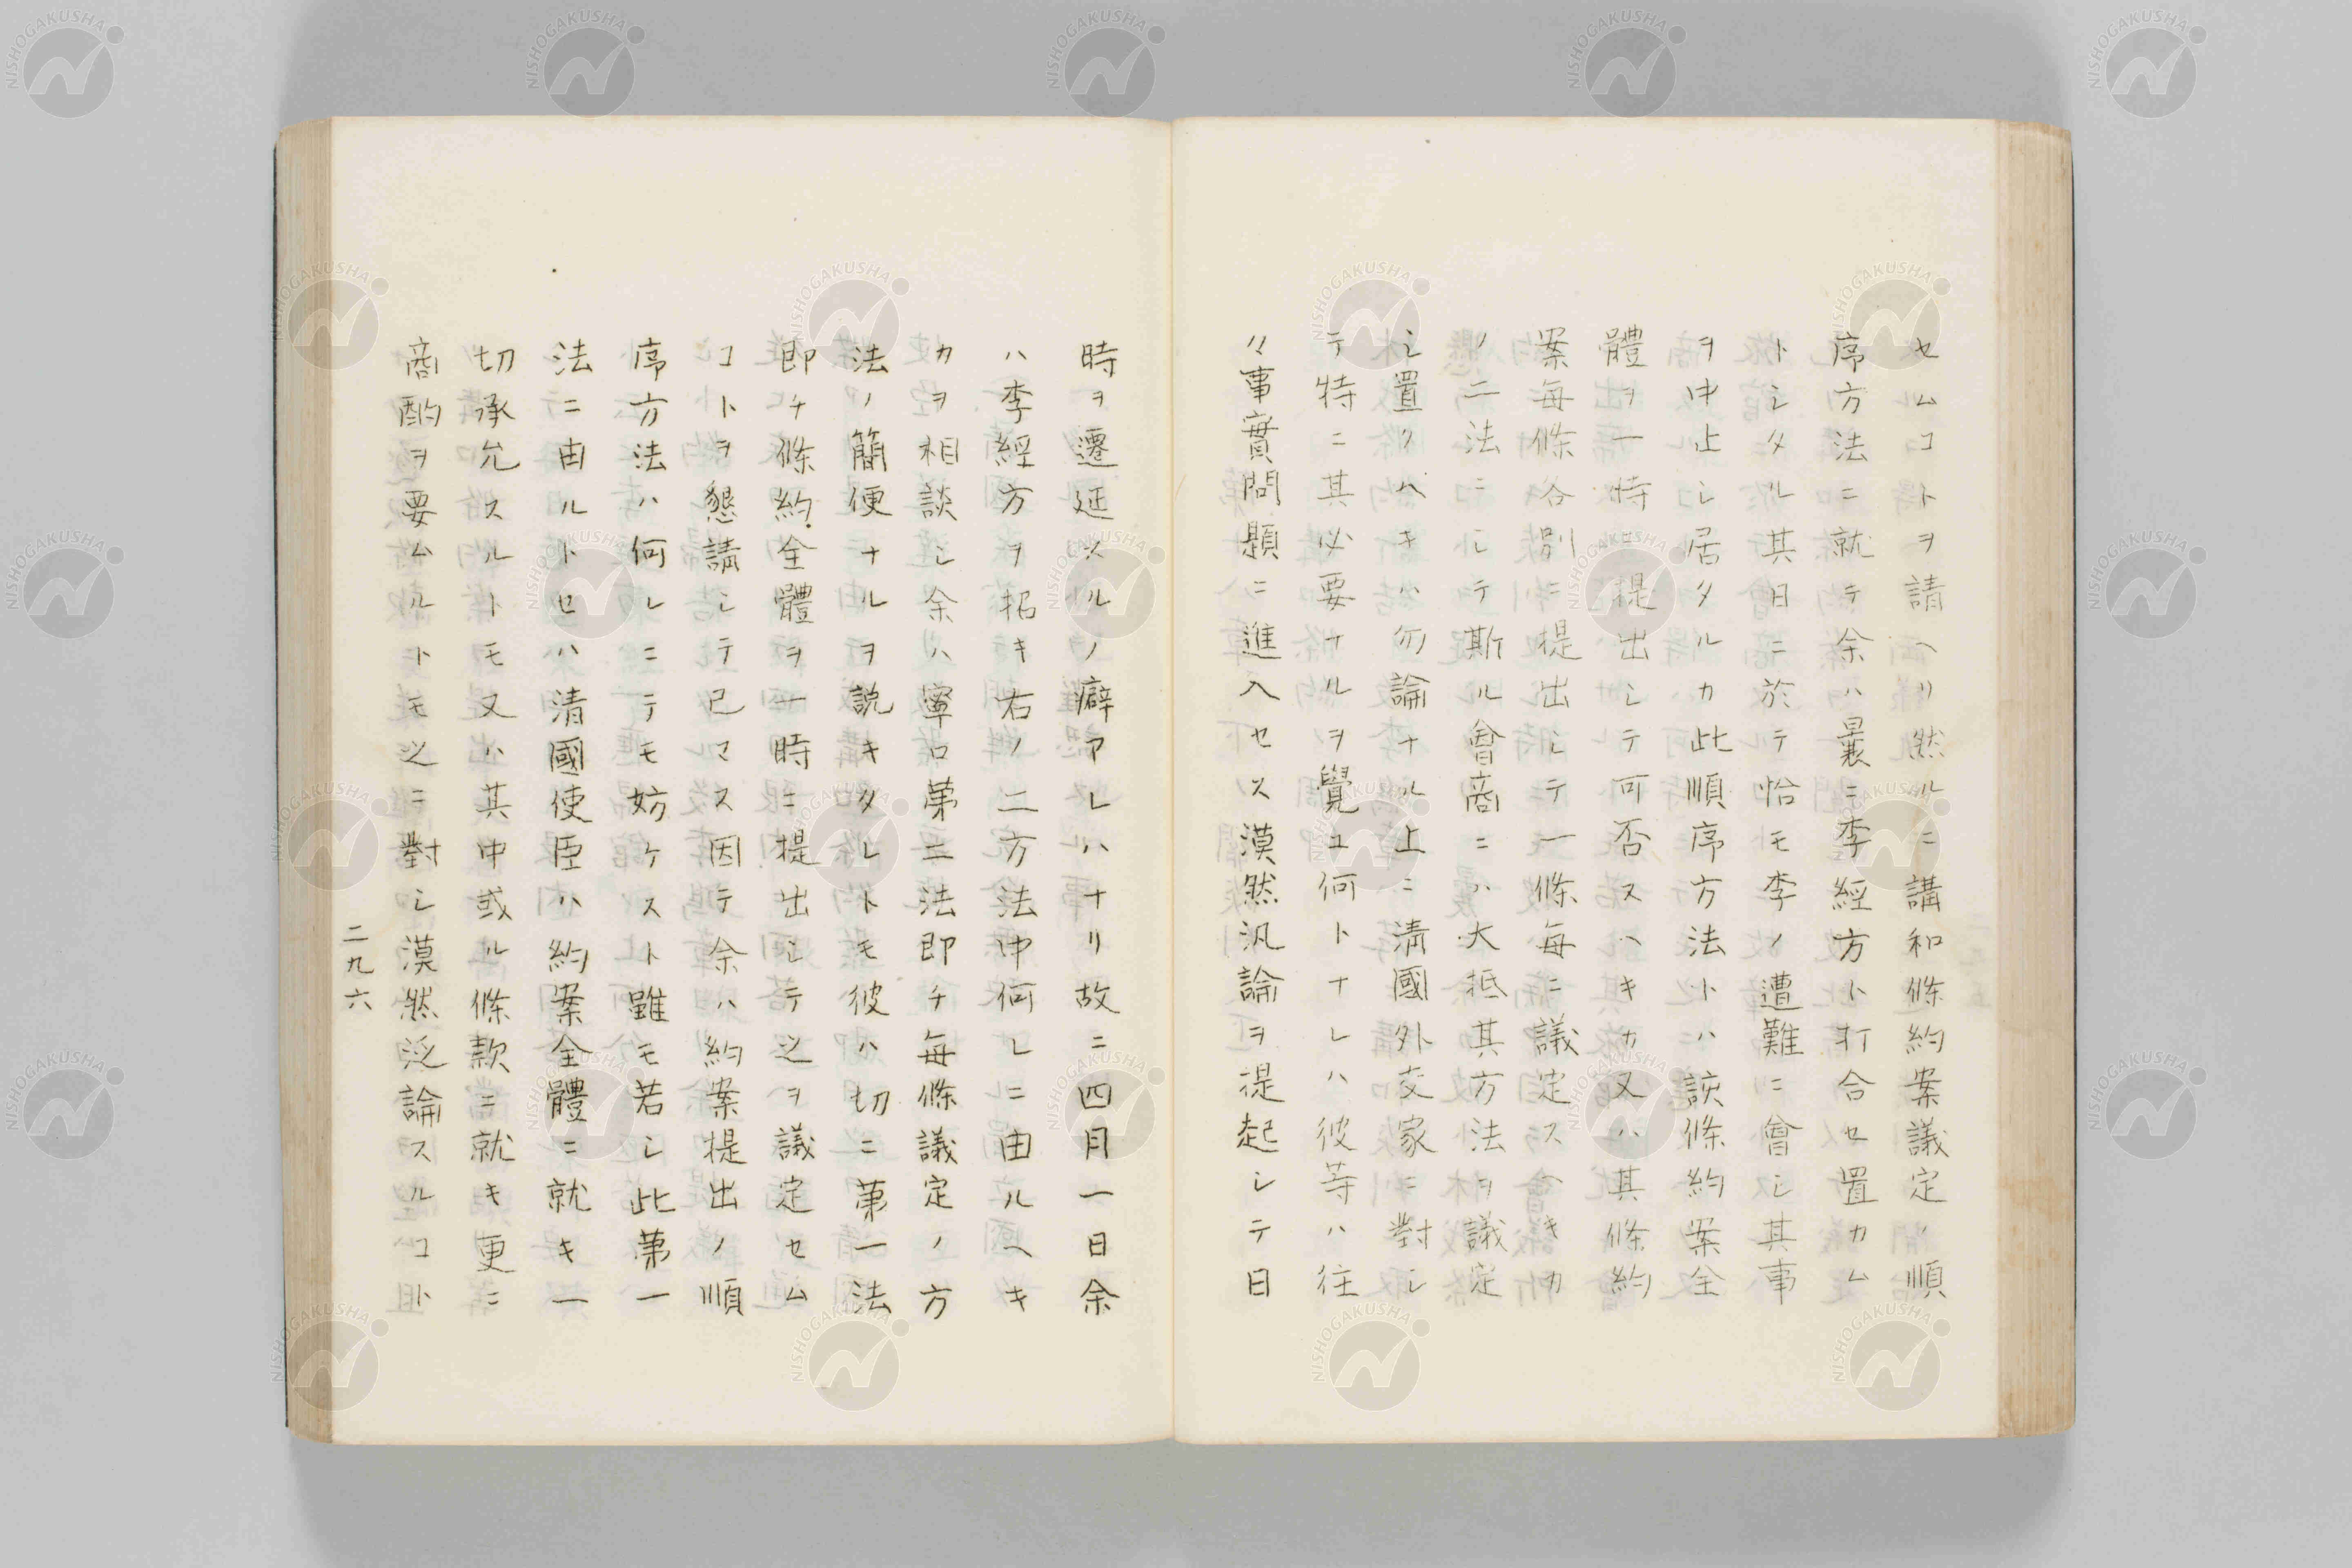 セムコトヲ請ヘリ然ルニ講和條約案議定ノ順
序方法ニ就テ余ハ曩ニ李經方ト打合セ置カム
トシタル其日ニ於テ恰モ李ノ遭難ニ會シ其事
ヲ中止シ居タルカ此順序方法トハ該條約案全
體ヲ一時ニ提出シテ可否スヘキカ又ハ其條約
案毎條各別ニ提出シテ一條毎ニ議定スヘキカ
ノ二法ニシテ斯ル會商ニハ大抵其方法ヲ議定
シ置クヘキハ勿論ナル上ニ清國外交家ニ對シ
テ特ニ其必要ナルヲ覺ユ何トナレハ彼等ハ往
々事實問題ニ進入セス漠然汎論ヲ提起シテ日
時ヲ遷延スルノ癖アレハナリ故ニ四月一日余
ハ李經方ヲ招キ右ノ二方法中何レニ由ルヘキ
カヲ相談シ余ハ寧ロ第二法即チ毎條議定ノ方
法ノ簡便ナルヲ説キタレトモ彼ハ切ニ第一法
即チ條約全體ヲ一時ニ提出シテ之ヲ議定セム
コトヲ懇請シテ已マス因テ余ハ約案提出ノ順
序方法ハ何レニテモ妨ケスト雖モ若シ此第一
法ニ由ルトセハ清國使臣ハ約案全體ニ就キ一
切承允スルトモ又ハ其中或ル條款ニ就キ更ニ
商酌ヲ要ムルトモ之ニ對シ漠然泛論スルコト
二九六
NISHOGAKUSHA